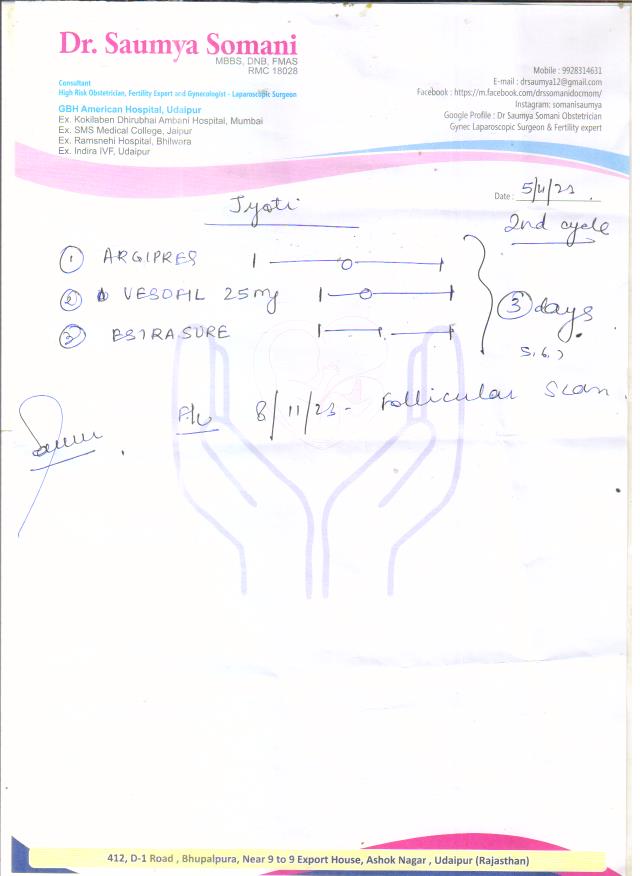 Dr. Saumya Somani
MBBS, DNB, FMAS
RMC 18028
Consultant
High Risk Obstetrician, Fertility Expert and Gynecologist - Laparoscopic Surgeon
GBH American Hospital, Udaipur
Ex. Kokilaben Dhirubhai Ambani Hospital, Mumbai
Ex. SMS Medical College, Jaipur
Ex. Ramsnehi Hospital, Bhilwara
Ex. Indira IVF, Udaipur
Mobile : 9928314631
E-mail : drsaumya12@gmail.com
Facebook : https://m.facebook.com/drssomanidocmom/
Instagram: somanisaumya
Google Profile : Dr Saumya Somani Obstetrician
Gynec Laparoscopic Surgeon & Fertility expert
Date : 5/11/23
Jyoti
2nd cycle
1 ARGIPRES 1 — 0 — 1
2 VESOFIL 25mg 1 — 0 — 1
3 ESTRASURE 1 — 1 — 1
3 days
5, 6, 7
F/U 8/11/23 - Follicular Scan
412, D-1 Road , Bhupalpura, Near 9 to 9 Export House, Ashok Nagar , Udaipur (Rajasthan)